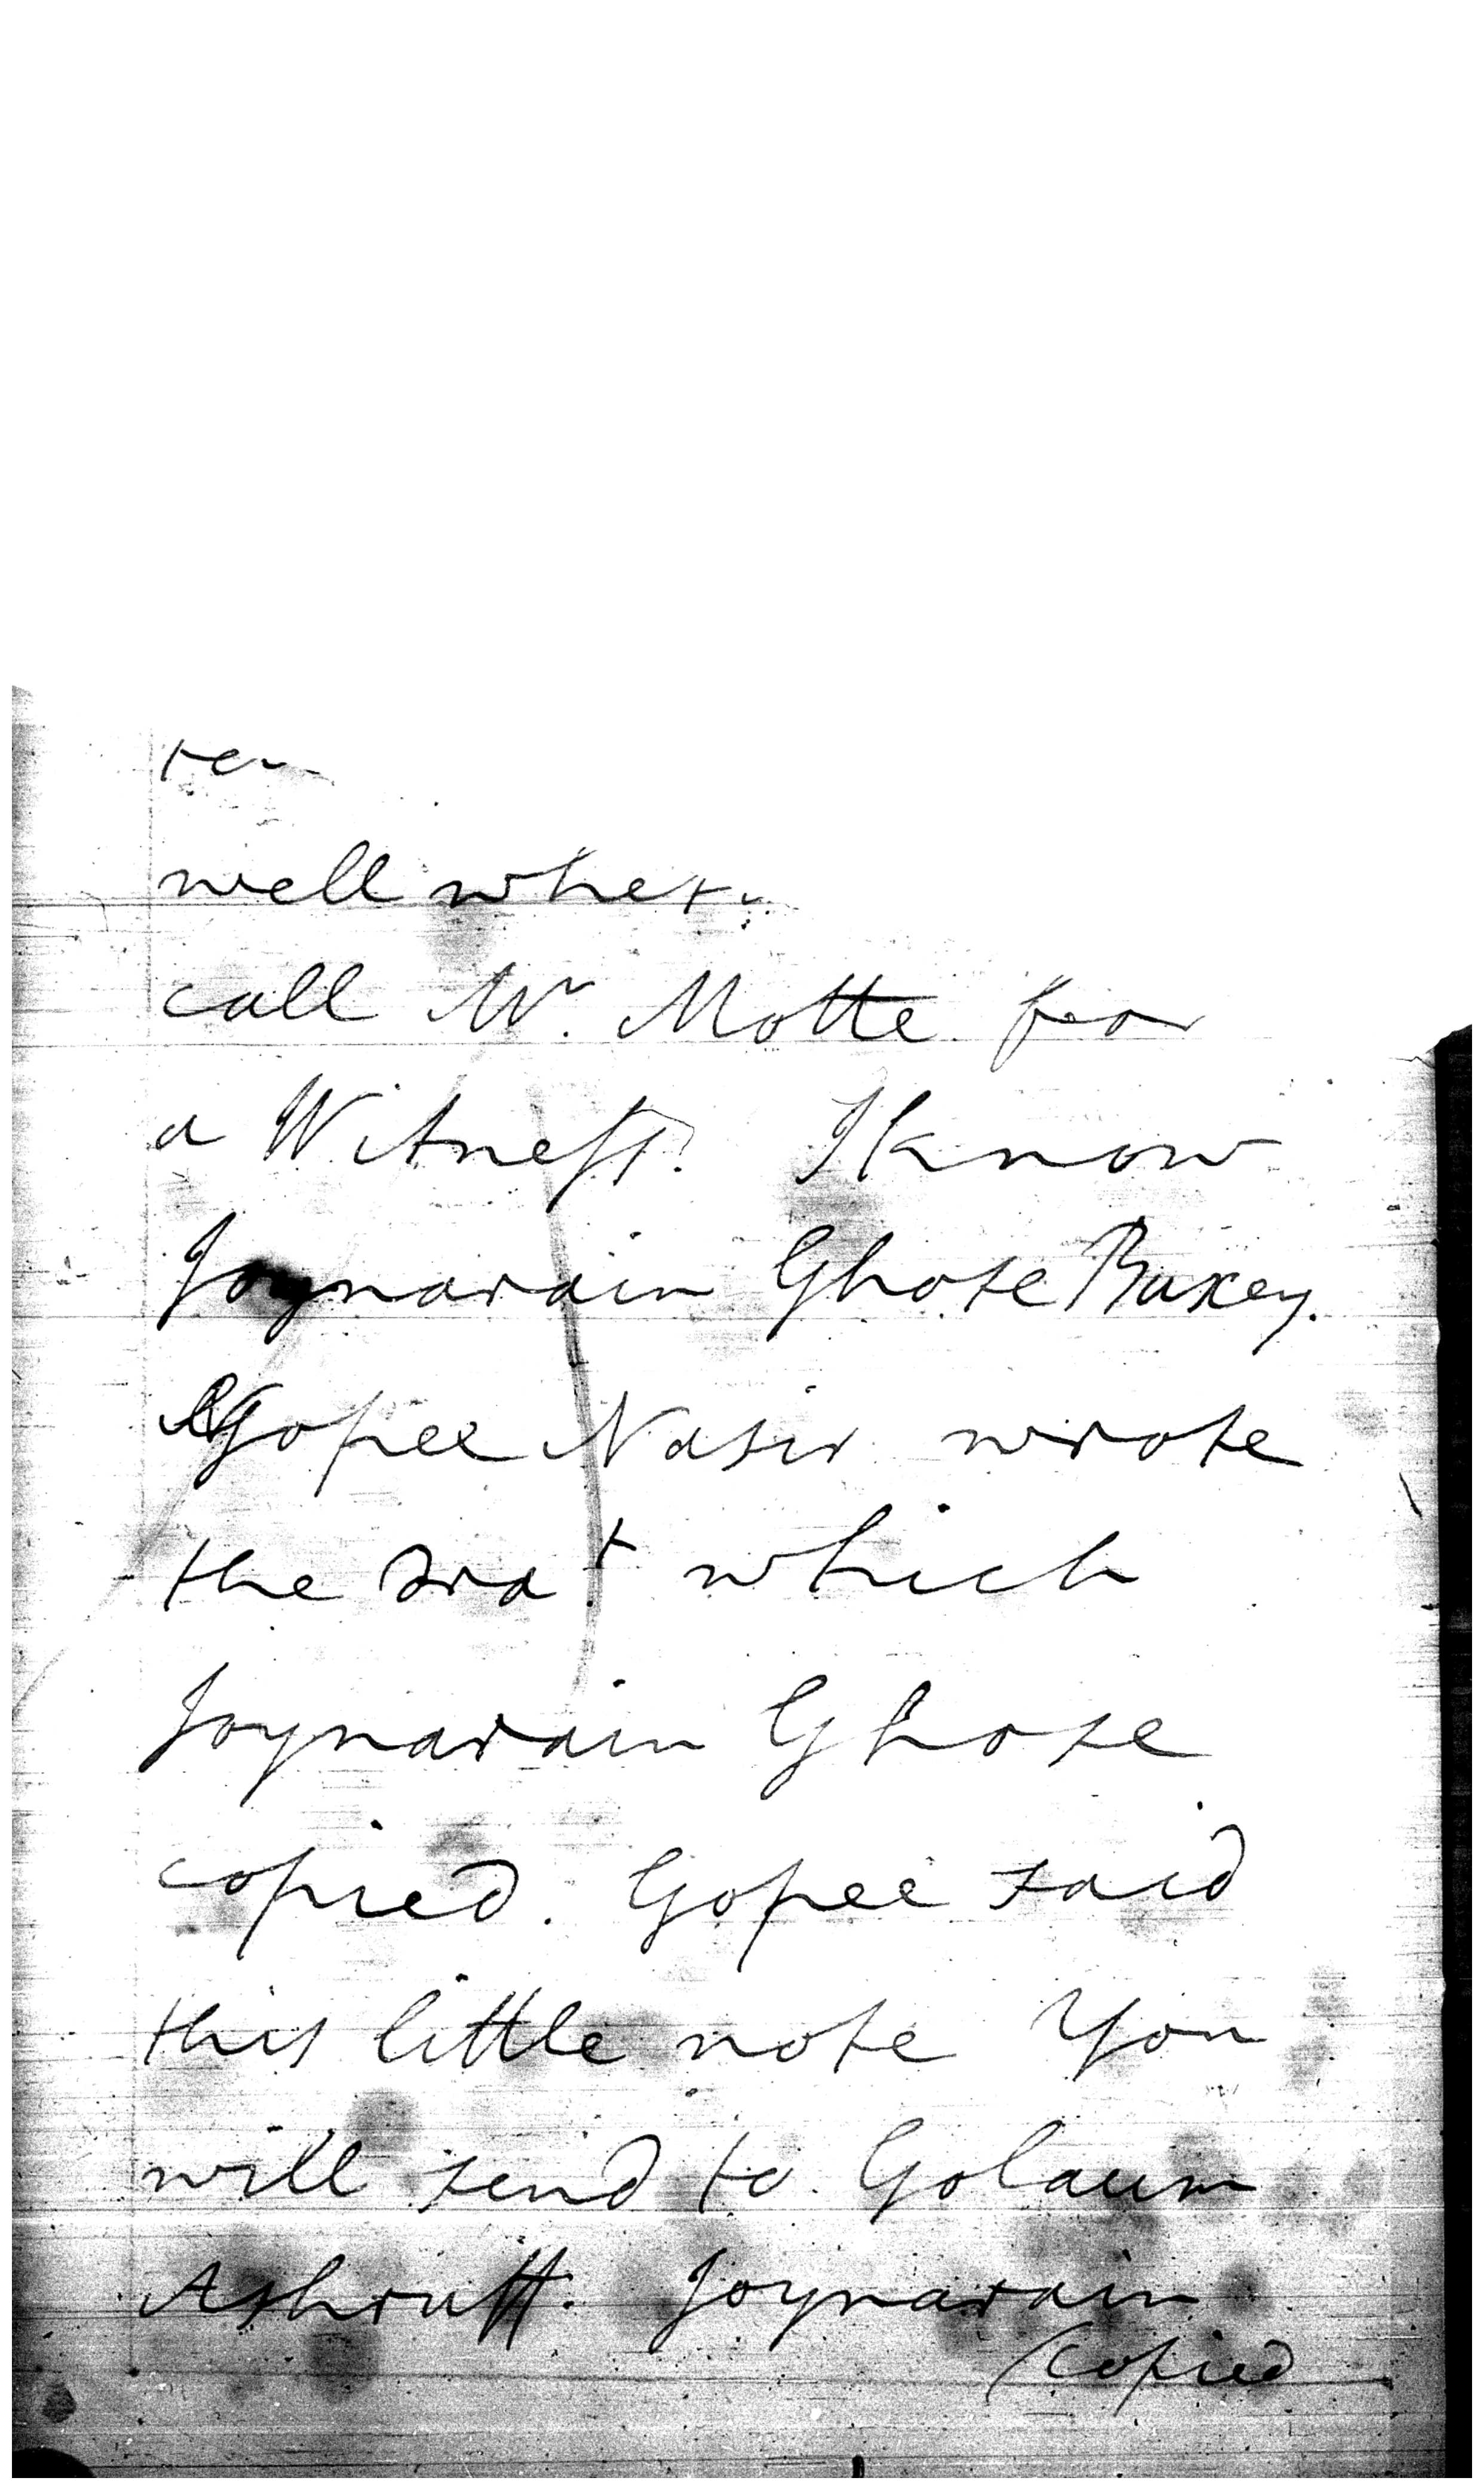 well
call Mr. Motte for
a Witness. I know
Joynarain Ghose Buxey.
Gopee Nasir wrote
the which
Joynarain Ghose
copied. Gopee said
this little note You
will send to Golaum
Ashruff. Joynarain
copied